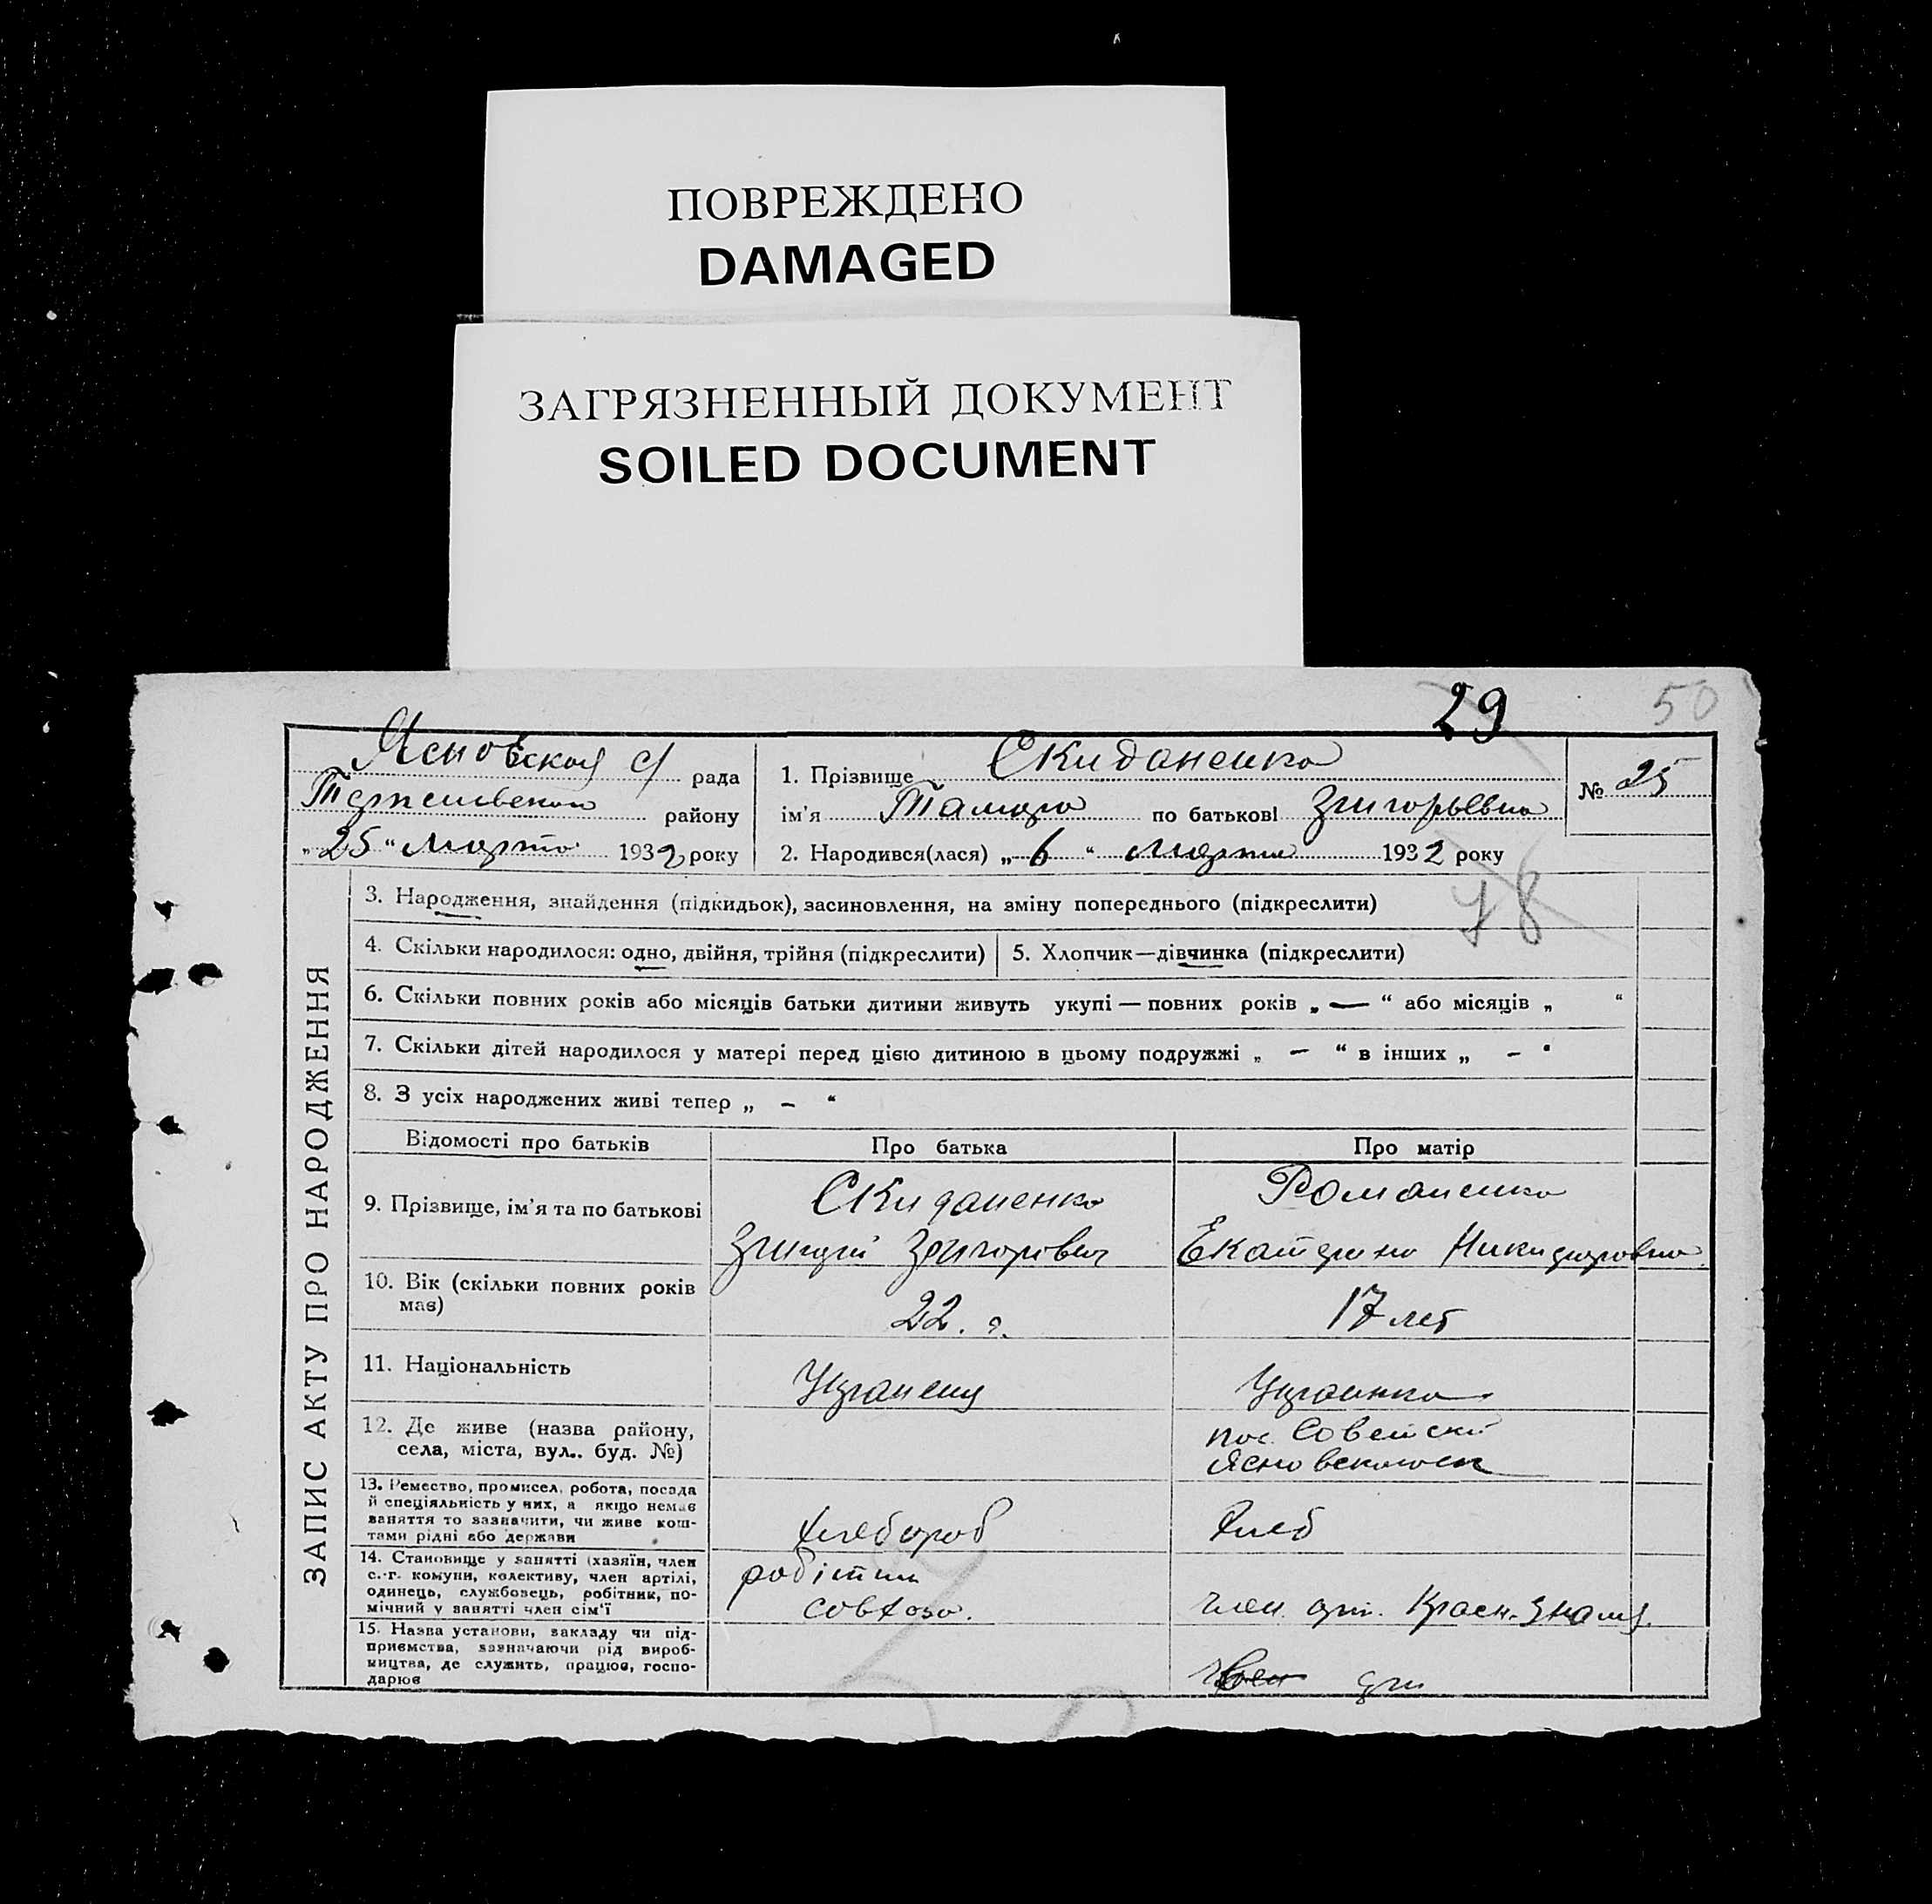 ПОВРЕЖДЕНО
DAMAGED
ЗАГРЯЗНЕННЫЙ ДОКУМЕНТ
SOILED DOCUMENT
29 50
Ясновская с/ рада
району
„25“ Марта 1932 року
1. Прізвище Скиданенко
ім'я Тамара по батькові Григорьевна
2. Народився(лася) „6“ Марта 1932 року
№ 25
78
ЗАПИС АКТУ ПРО НАРОДЖЕННЯ
3. Народження, знайдення (підкидьок), засиновлення, на зміну попереднього (підкреслити)
4. Скільки народилося: одно, двійня, трійня (підкреслити) 5. Хлопчик—дівчинка (підкреслити)
6. Скільки повних років або місяців батьки дитини живуть укупі — повних років „ — “ або місяців „ “
7. Скільки дітей народилося у матері перед цією дитиною в цьому подружжі „ — “ в інших „ — “
8. З усіх народжених живі тепер „ — “
Відомості про батьків Про батька Про матір
9. Прізвище, ім'я та по батькові
Скиданенко
Григорій Григорович
Романенко
Екатерина Никифоровна
10. Вік (скільки повних років
має)
22. г.
17 лет
11. Національність
Украинец
Украинка
12. Де живе (назва району,
села, міста, вул.. буд. №)
пос. Советский
13. Ремество, промисел, робота, посада
й спеціяльність у них, а якщо немає
заняття то зазначити, чи живе кош-
тами рідні або держави
Хлебороб
Хлеб
14. Становище у занятті (хазяїн, член
с.-г. комуни, колективу, член артілі,
одинець, службовець, робітник, по-
мічний у занятті член сім'ї
робітник
совхоза.
член арт. Красн. Знамя.
15. Назва установи, закладу чи під-
приємства, зазначаючи рід вироб-
ництва, де служить, працює, госпо-
дарює